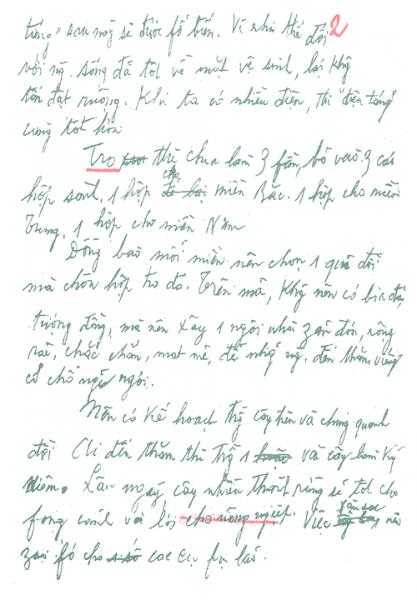 táng" sau này sẽ được fổ biến. Vì như thế đối 2
với ng. sống đã tốt về mặt vệ sinh, lại khg
tốn đất ruộng. Khi ta có nhiều điện, thì "điện táng"
càng tốt hơn.
Tro thì chia làm 3 fần, bỏ vào 3 cái
hộp sành, 1 hộp cho miền Bắc. 1 hộp cho miền
Trung, 1 hộp cho miền Nam
Đồng bào mỗi miền nên chọn 1 quả đồi
mà chôn hộp tro đó. Trên mả, khg nên có bia đá,
tượng đồng, mà nên xây 1 ngôi nhà zản đơn, rộng
rãi, chắc chắn, mát mẻ, để nhg ng. đến thăm viếng
có chỗ nghỉ ngơi.
Nên có kế hoạch trg cây trên và chung quanh
đồi. Ai đến thăm thì trg 1 vài cây làm kỷ
niệm. Lâu ngày cây nhiều thành rừng sẽ tốt cho
fong cảnh và lợi cho nông nghiệp. Việc săn sóc nên
zao fó cho các cụ fụ lão.